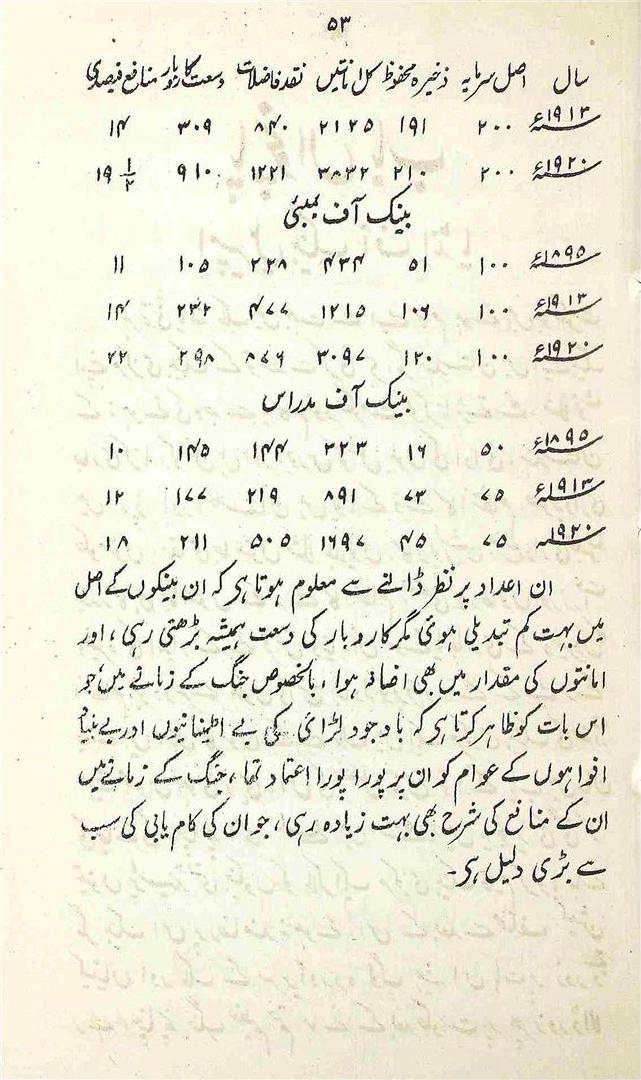 ۵۳
سال اصل سرمایہ ذخیرہ محفوظ کل امانتیں نقد فاضلات وسعت کاروبار منافع فیصدی
۱۹۱۳ء ۲۰۰ ۱۹۱ ۲۱۲۵ ۸۴۰ ۳۰۹ ۱۴
۱۹۲۰ء ۲۰۰ ۲۱۰ ۳۸۳۲ ۱۲۲۱ ۹۱۰ ۱۹ ۱/۲
بینک آف بمبئی
۱۸۹۵ء ۱۰۰ ۵۱ ۴۳۴ ۲۲۸ ۱۰۵ ۱۱
۱۹۱۳ء ۱۰۰ ۱۰۶ ۱۲۱۵ ۴۷۷ ۲۳۲ ۱۴
۱۹۲۰ء ۱۰۰ ۱۲۰ ۳۰۹۷ ۸۷۶ ۲۹۸ ۲۲
بینک آف مدراس
۱۸۹۵ء ۵۰ ۱۶ ۲۲۳ ۱۴۴ ۱۴۵ ۱۰
۱۹۱۳ء ۷۵ ۷۳ ۸۹۱ ۲۱۹ ۱۷۷ ۱۲
۱۹۲۰ ۷۵ ۴۵ ۱۶۹۷ ۵۰۵ ۲۱۱ ۱۸
ان اعداد پر نظر ڈالنے سے معلوم ہوتا ہی کہ ان بینکوں کے اصل
میں بہت کم تبدیلی ہوئی مگر کاروبار کی وسعت ہمیشہ بڑھتی رہی، اور
امانتوں کی مقدار میں بھی اضافہ ہوا، بالخصوص جنگ کے زمانے میں، جو
اس بات کو ظاہر کرتا ہی کہ باوجود لڑائی کی بے اطمنانیوں اور بے بنیاد
افواہوں کے عوام کو ان پر پورا پورا اعتماد تھا، جنگ کے زمانے میں
ان کے منافع کی شرح بھی بہت زیادہ رہی، جو ان کی کام یابی کی سب
سے بڑی دلیل ہی۔